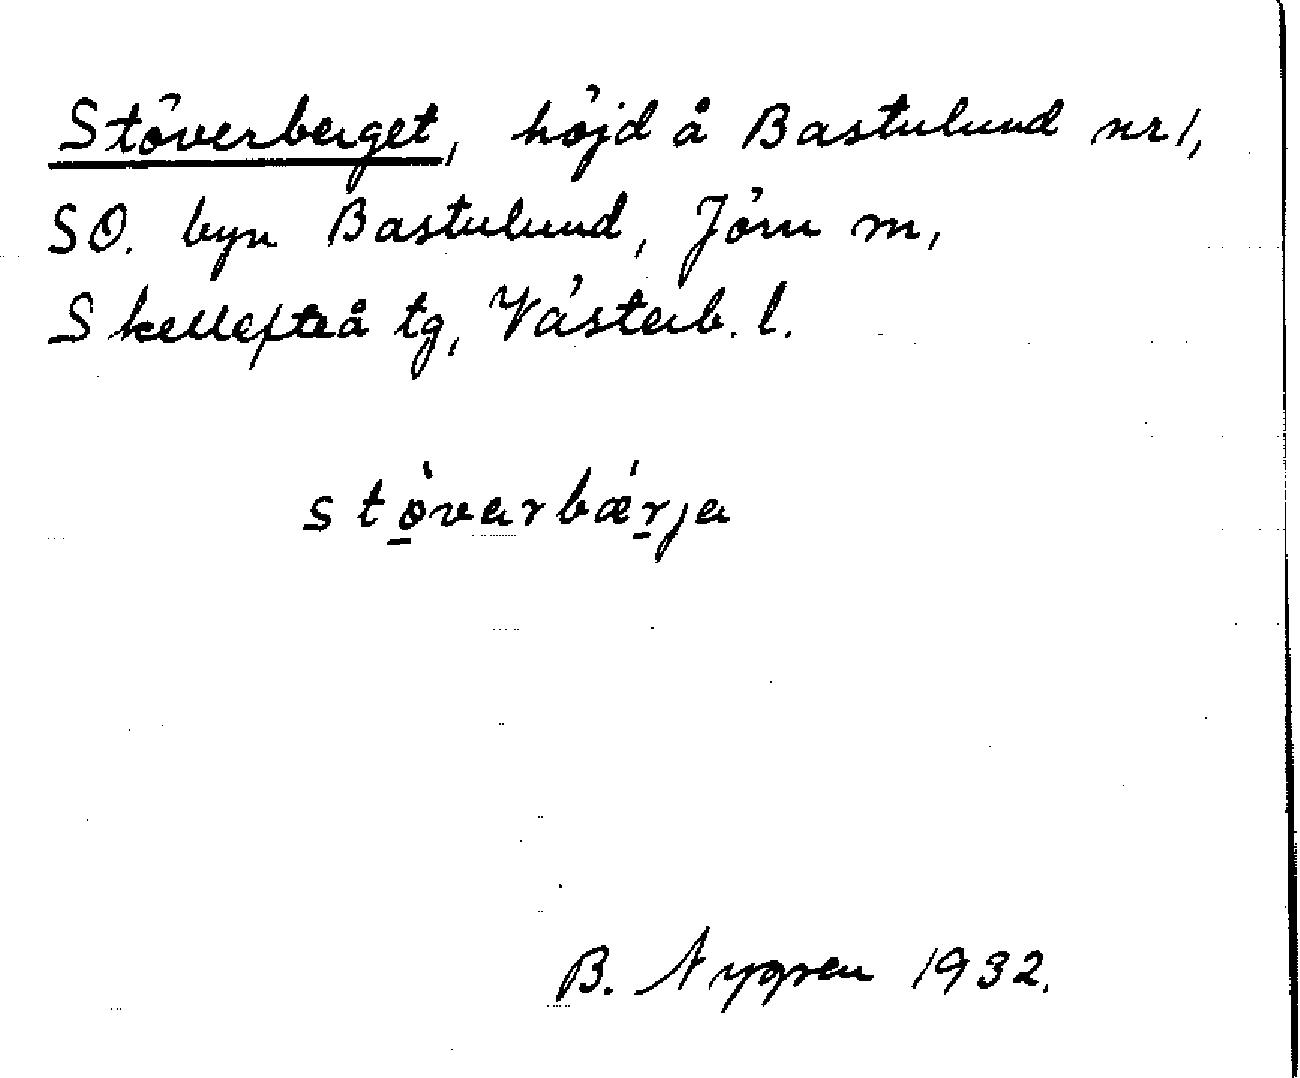 Stöverberget, höjd å Bastulund nr 1,
SO. byn Bastulund, Jörn m,
Skellefteå tg, Västerb. l.
stö̀varbǽrja
B. Nygren 1932.